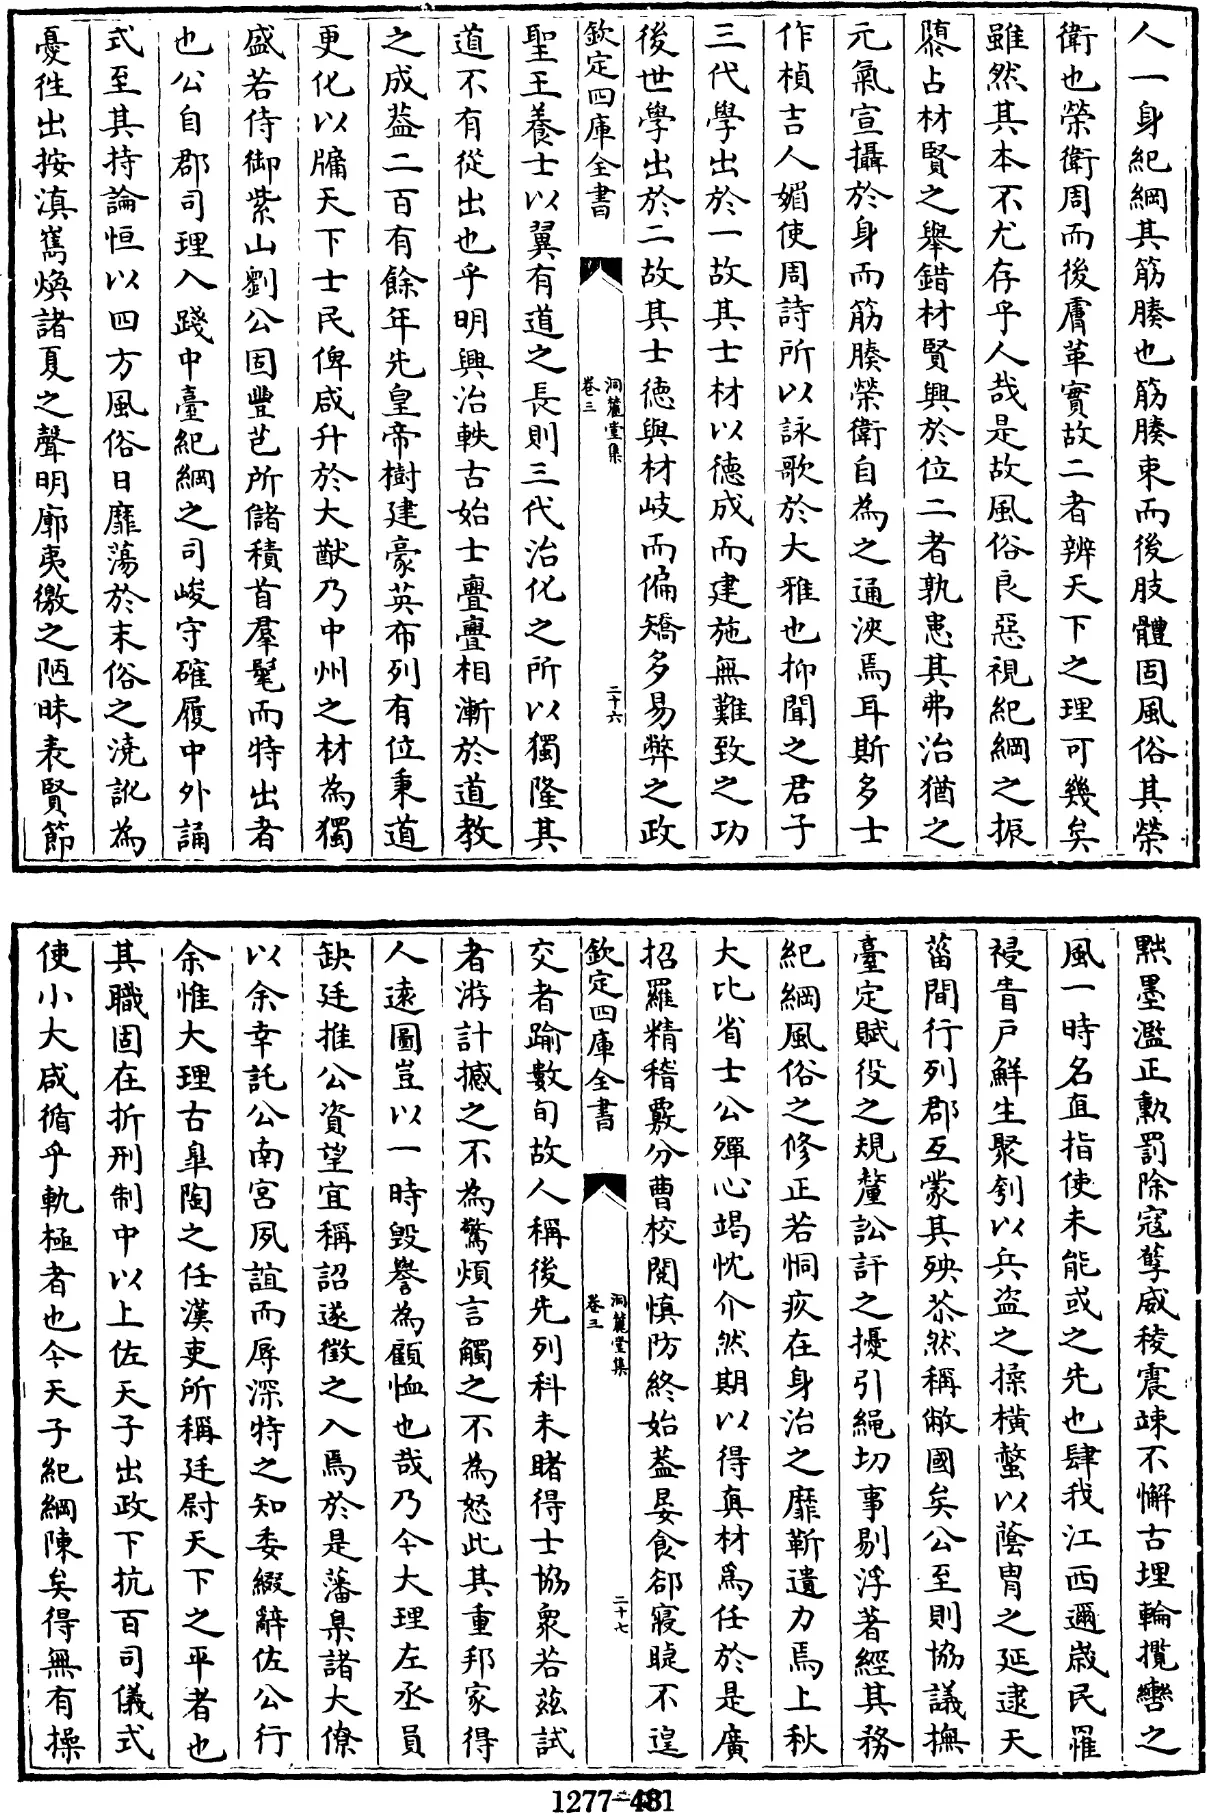 人一身紀綱其筋腠也筋腠束而後肢體固風俗其榮
衛也榮衛周而後膚革實故二者辨天下之理可幾矣
雖然其本不尤存乎人哉是故風俗良惡視紀綱之振
隳占材賢之舉錯材賢興於位二者孰患其弗治猶之
元氣宣攝於身而筋腠榮衛自為之通浹焉耳斯多士
作楨吉人媚使周詩所以詠歌於大雅也抑聞之君子
三代學出於一故其士材以徳成而建施無難致之功
後世學出於二故其士徳與材岐而偏矯多易弊之政
欽定四庫全書
洞麓堂集
卷三
二十六
聖王養士以翼有道之長則三代治化之所以獨隆其
道不有從出也乎明興治軼古始士亹亹相漸於道教
之成葢二百有餘年先皇帝樹建豪英布列有位秉道
更化以牖天下士民俾咸升於大猷乃中州之材為獨
盛若侍御紫山劉公固豐芑所儲積首羣髦而特出者
也公自郡司理入踐中臺紀綱之司峻守確履中外誦
式至其持論恒以四方風俗日靡蕩於末俗之澆訛為
憂徃出按滇寯煥諸夏之聲明廓夷徼之陋昧表賢節
黜墨濫正勲罰除寇孽威稜震竦不懈古埋輪攬轡之
風一時名直指使未能或之先也肆我江西邇歲民罹
祲眚戸鮮生聚刳以兵盗之操橫螫以蔭胄之延逮天
菑間行列郡互蒙其殃苶然稱敝國矣公至則協議撫
臺定賦役之規釐訟訐之擾引繩切事剔浮著經其務
紀綱風俗之修正若恫疚在身治之靡靳遺力焉上秋
大比省士公殫心竭忱介然期以得真材爲任於是廣
招羅精稽覈分曹校閲慎防終始葢晏食郤寢睫不遑
欽定四庫全書
洞麓堂集
卷三
二十七
交者踰數旬故人稱後先列科未睹得士協衆若兹試
者游計撼之不為驚煩言觸之不為怒此其重邦家得
人逺圖豈以一時毀譽為顧恤也哉乃今大理左丞員
缺廷推公資望宜稱詔遂徵之入焉於是藩臬諸大僚
以余幸託公南宮夙誼而辱深特之知委綴辭佐公行
余惟大理古臯陶之任漢吏所稱廷尉天下之平者也
其職固在折刑制中以上佐天子出政下抗百司儀式
使小大咸循乎軌極者也今天子紀綱陳矣得無有操
1277-481